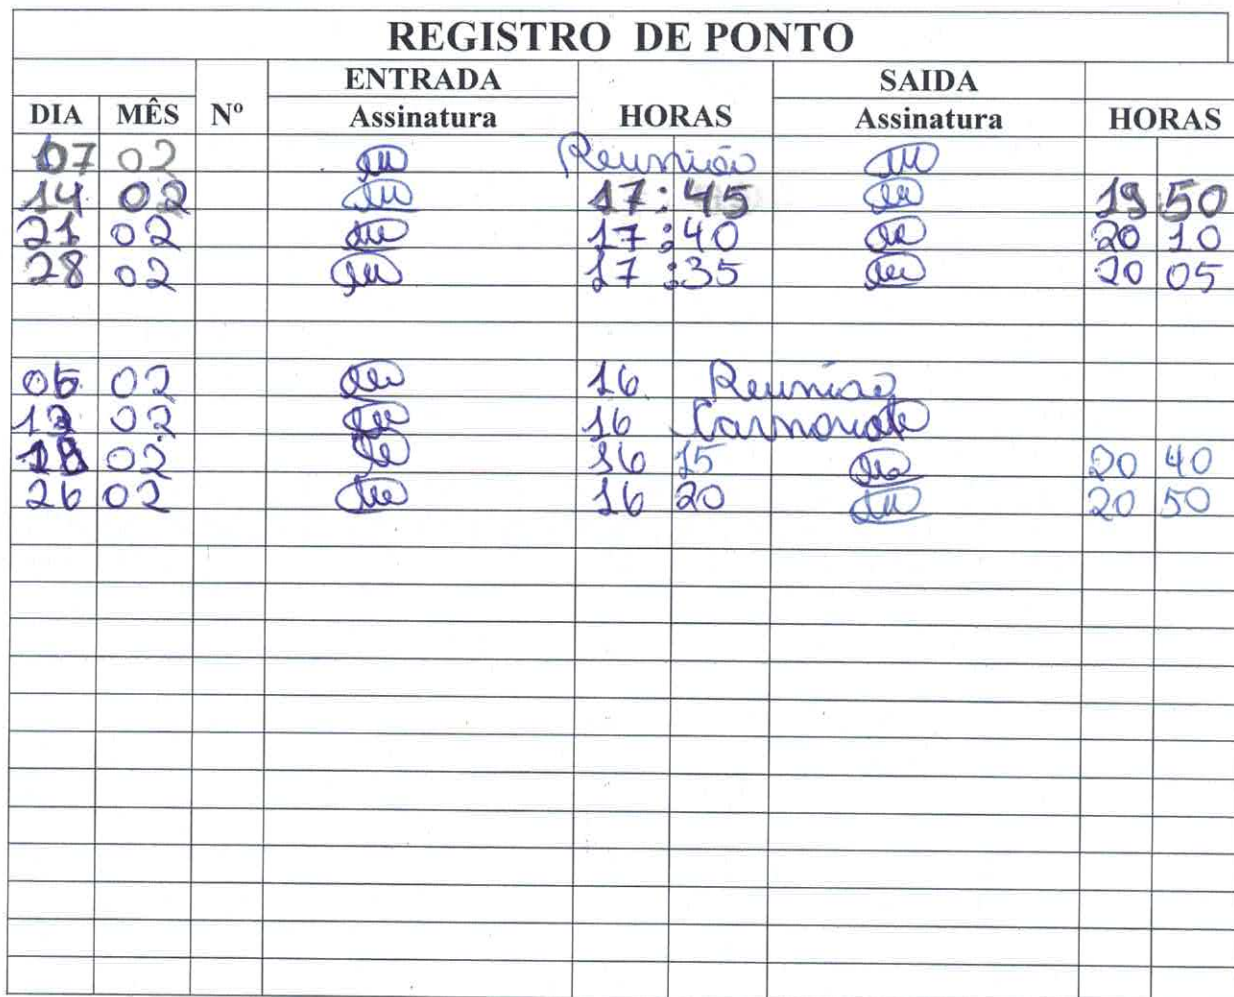 REGISTRO DE PONTO
ENTRADA SAIDA
DIA MÊS Nº Assinatura HORAS Assinatura HORAS
07 02 Reunião
14 02 17:45 19 50
21 02 17:40 20 10
28 02 17:35 20 05
05 02 16 Reunião
12 02 16
02 16 15 20 40
26 02 16 20 20 50